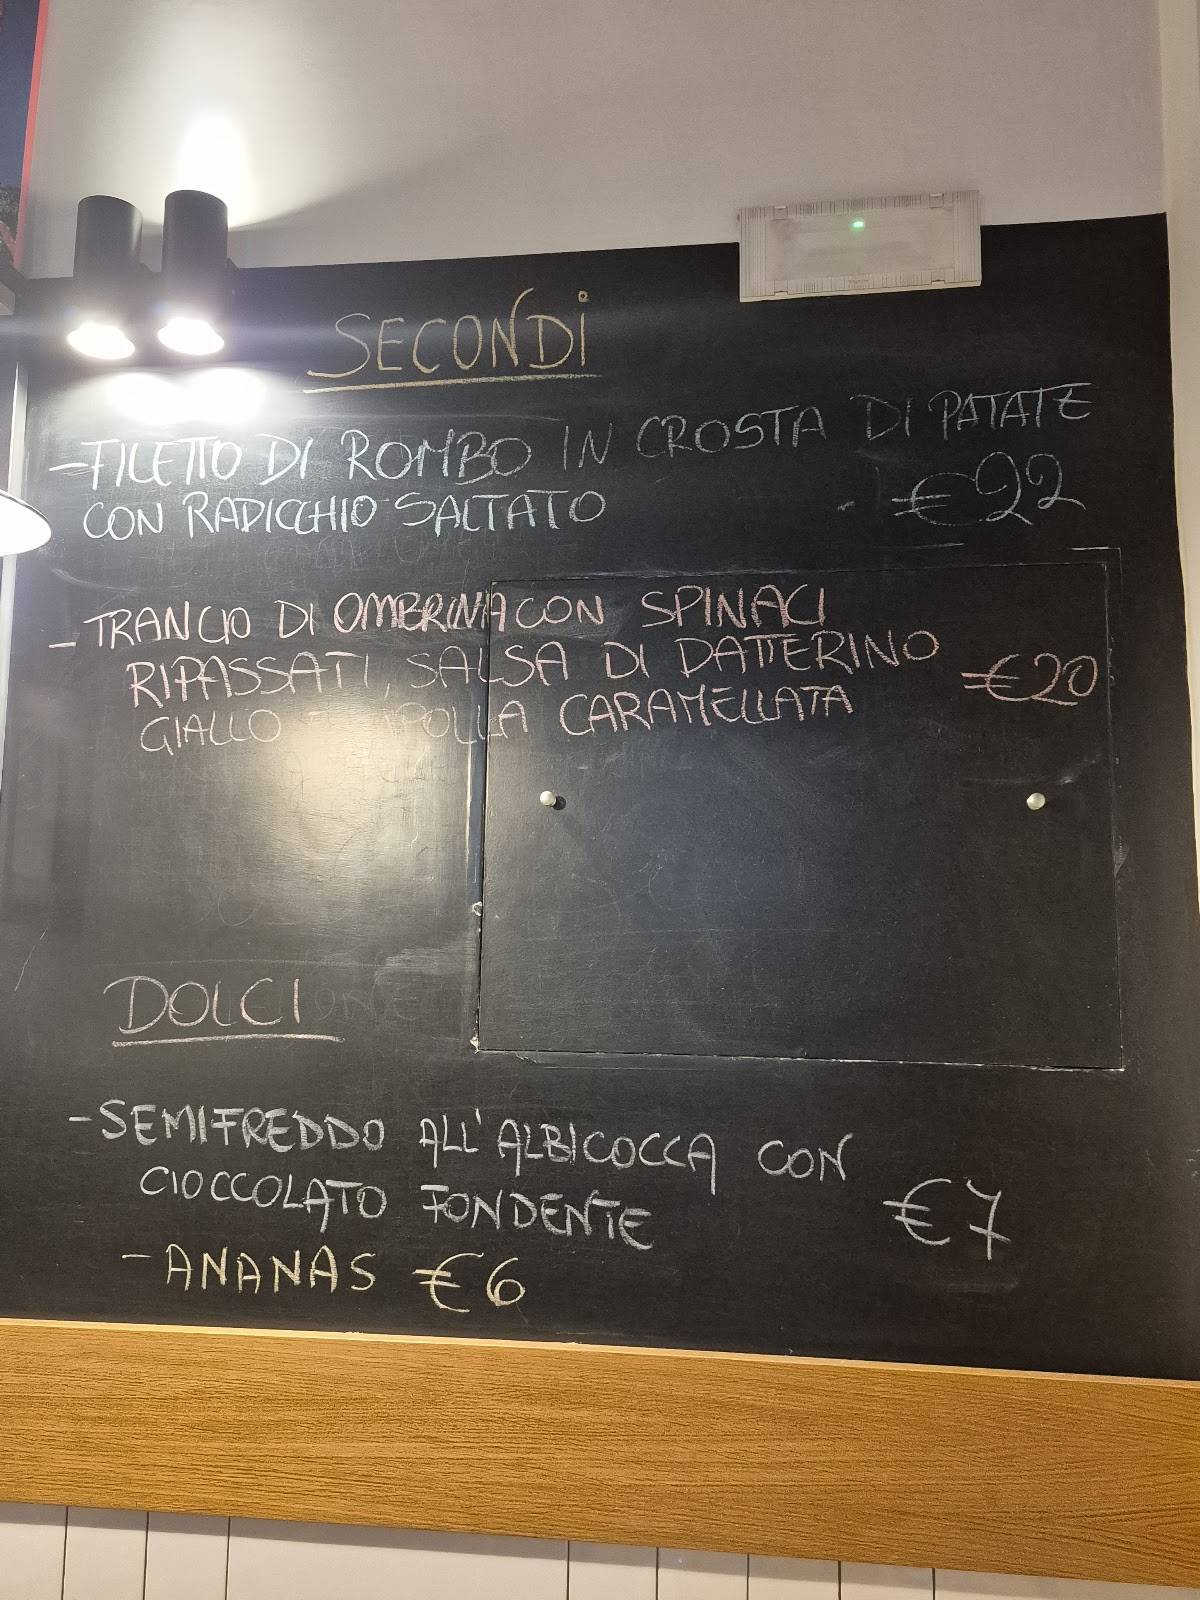 SECONDI
- FILETTO DI ROMBO IN CROSTA DI PATATE
CON RADICCHIO SALTATO €22
- TRANCIO DI OMBRINA CON SPINACI
RIPASSATI, SALSA DI DATTERINO €20
GIALLO CIPOLLA CARAMELLATA
DOLCI
- SEMIFREDDO ALL'ALBICOCCA CON
CIOCCOLATO FONDENTE €7
- ANANAS €6